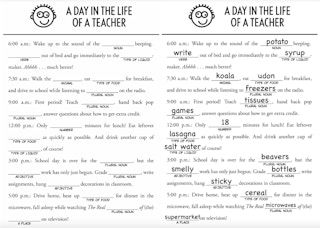 A DAY IN THE LIFE
OF A TEACHER
6:00 a.m.: Wake up to the sound of the beeping.
NOUN
out of bed and go immediately to the
VERB
TYPE OF LIQUID
maker. Ahhhhh . . . much better!
7:30 a.m.: Walk the , eat for breakfast,
ANIMAL
TYPE OF FOOD
and drive to school while listening to on the radio.
PLURAL NOUN
9:00 a.m.: First period! Teach hand back pop
PLURAL NOUN
answer questions about how to get extra credit.
PLURAL NOUN
12:00 p.m.: Only minutes for lunch! Eat leftover
NUMBER
as quickly as possible. And drink another cup
TYPE OF FOOD
of
TYPE OF LIQUID
3:00 p.m.: School day is over for the but the
PLURAL NOUN
work has only just begun. Grade write
ADJECTIVE
PLURAL NOUN
assignments, hang decorations in classroom.
ADJECTIVE
5:00 p.m.: Drive home, heat up for dinner in the
TYPE OF FOOD
microwave, fall asleep while watching The Real of (the)
PLURAL NOUN
on television!
A PLACE
A DAY IN THE LIFE
OF A TEACHER
6:00 a.m.: Wake up to the sound of the potato beeping.
NOUN
write out of bed and go immediately to the syrup
VERB
TYPE OF LIQUID
maker. Ahhhhh . . . much better!
7:30 a.m.: Walk the koala, eat udon for breakfast,
ANIMAL
TYPE OF FOOD
and drive to school while listening to freezers on the radio.
PLURAL NOUN
9:00 a.m.: First period! Teach tissues hand back pop
PLURAL NOUN
games answer questions about how to get extra credit.
PLURAL NOUN
12:00 p.m.: Only 18 minutes for lunch! Eat leftover
NUMBER
lasagna as quickly as possible. And drink another cup
TYPE OF FOOD
salt water of coffee!
TYPE OF LIQUID
3:00 p.m.: School day is over for the beavers but the
PLURAL NOUN
smelly work has only just begun. Grade bottles, write
ADJECTIVE
PLURAL NOUN
assignments, hang sticky decorations in classroom.
ADJECTIVE
5:00 p.m.: Drive home, heat up cereal for dinner in the
TYPE OF FOOD
microwave, fall asleep while watching The Real microwaves of (the)
PLURAL NOUN
supermarket on television!
A PLACE